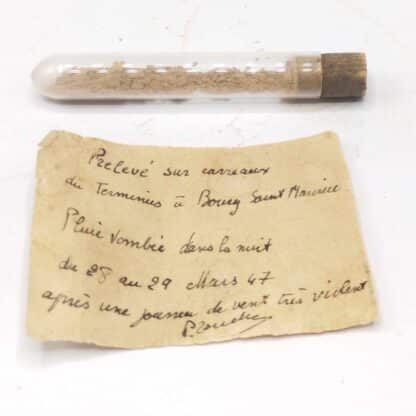 Prelevé sur carreaux
du Terminus à Bourg Saint Maurice
Pluie tombée dans la nuit
du 28 au 29 Mars 47
après une journée de vent très violent